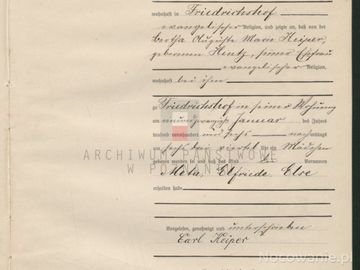 wohnhaft in Friedrichshof
evangelischer Religion, und zeigte an, daß von der
Bertha Auguste Marie Keiper,
geborenen Hentz, seiner Ehefrau
evangelischer Religion,
wohnhaft bei ihm
zu Friedrichshof in seiner Wohnung
am Januar des Jahres
tausend neunhundert und sechs nachmittags
sechs drei viertel Uhr ein Mädchen
geboren worden sei und daß das Kind Vornamen
Meta Elfriede Else
erhalten habe
Vorgelesen, genehmigt und unterschrieben
Carl Keiper
ARCHIWUM PAŃSTWOWE
W POZNANIU
Nocowanie.pl